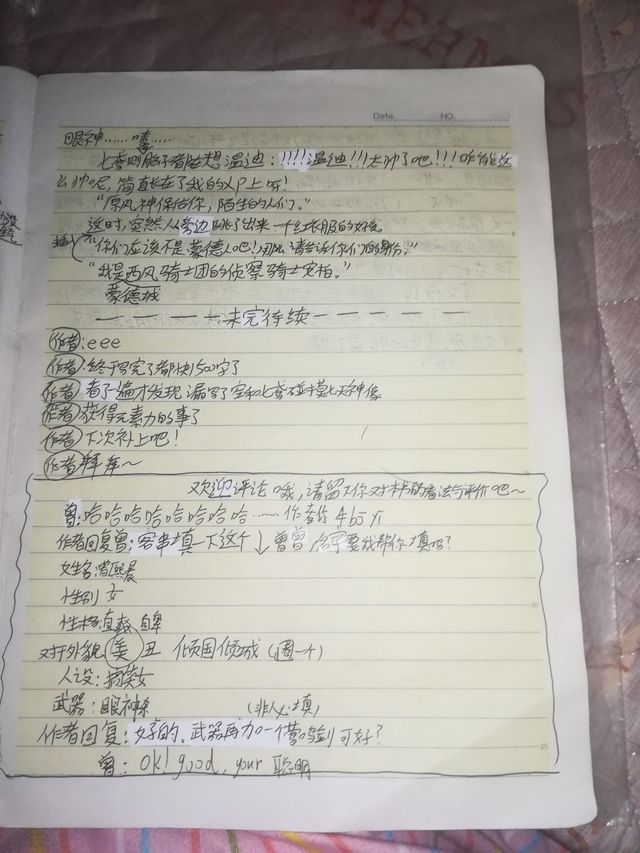 Date NO.
眼神……嗜……
七聋则脑子都在想温迪：!!!!温迪!!!太帅了吧!!!咋能这
么帅呢，简直长在了我的XP上呀!
“愿风神保佑你，陌生的人们。”
这时，突然从旁边跳了出来一个红衣服的好友
“你们应该不是蒙德人吧!那么请告诉你们的身份。”
“我是西风骑士团的侦察骑士安柏。”
蒙德城
— — — — —未完待续— — — — —
作者:eee
作者:终于写完了都快1500字了
作者:看了一遍才发现漏写了空和七聋碰摸七天神像
作者:获得元素力的事了
作者:下次补上吧!
作者:拜拜~
欢迎评论哦，请留下你对本书的看法与评价吧~
曾:哈哈哈哈哈哈哈哈……作者你
作者回复曾:客串填一下这个↓曾曾 需要我帮你填吗?
女姓名:曾熙晨
性别 女
性格:直爽 自卑
对于外貌 美 丑 倾国倾城 (圈一个)
人设:搞笑女
武器:眼神杀 (非必填)
作者回复:好的，武器再加一个 剑可好?
曾:Ok! good, your 聪明